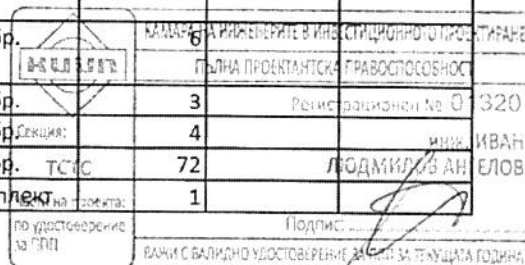 КАМАРА НА ИНЖЕНЕРИТЕ В ИНВЕСТИЦИОННОТО ПРОЕКТИРАНЕ
бр. 6
КИИП
ПЪЛНА ПРОЕКТАНТСКА ПРАВОСПОСОБНОСТ
бр. 3 Регистрационен № 01320
бр. Секция: 4 инж. ИВАН
бр. ТСТС 72 ЛЮДМИЛОВ АНГЕЛОВ
плект 1
Части на проекта:
по удостоверение
за ППП
Подпис:
ВАЖИ С ВАЛИДНО УДОСТОВЕРЕНИЕ ЗА ППП ЗА ТЕКУЩАТА ГОДИНА